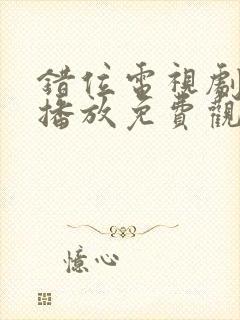 錯位電視劇
播放免費觀
憶心